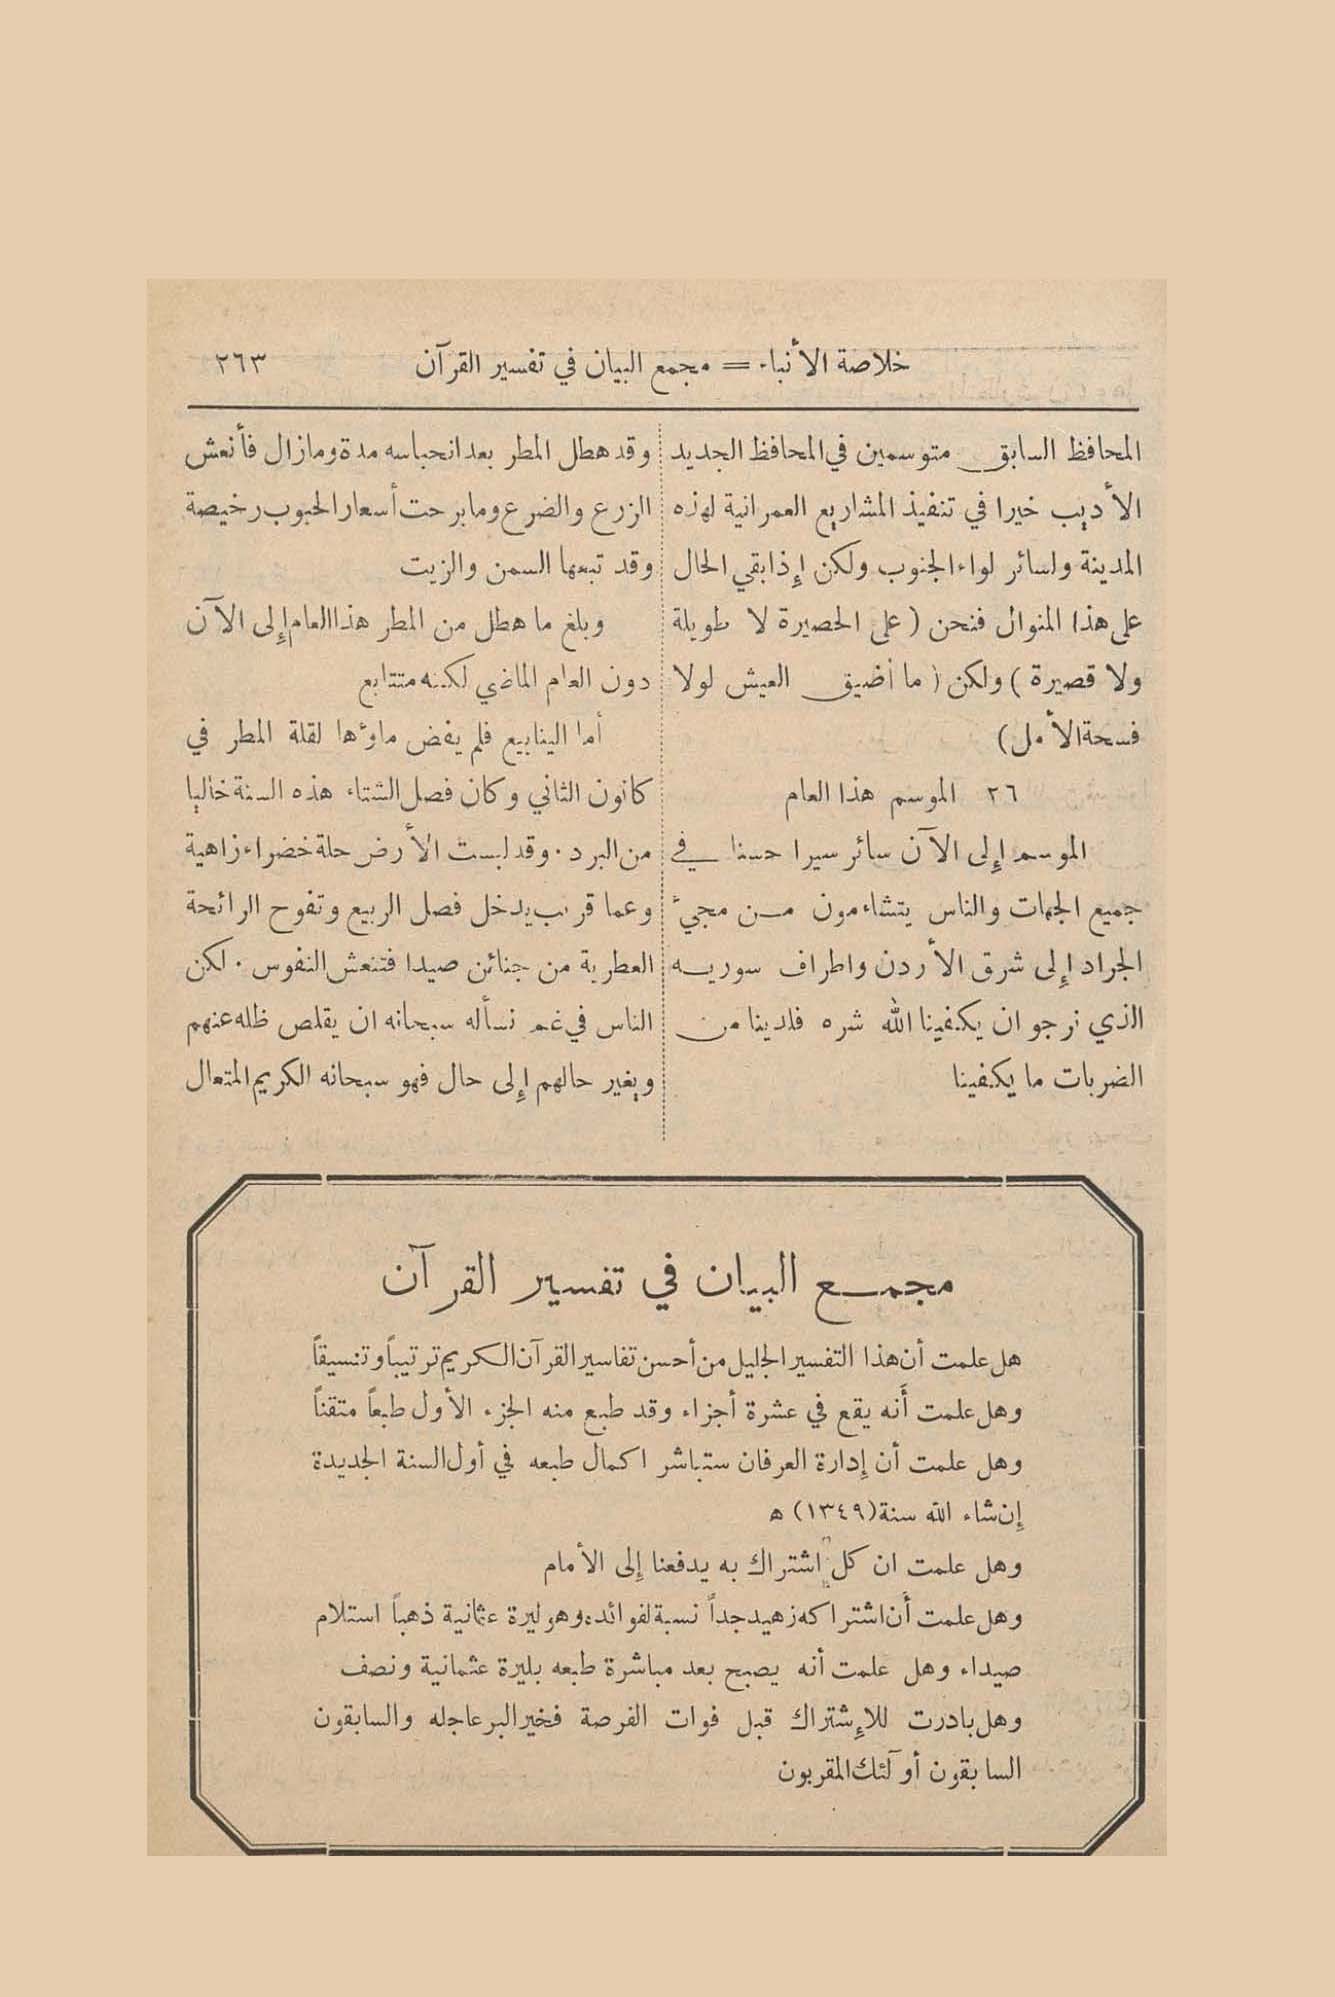 خلاصة الأنباء = مجمع البيان في تفسير القرآن ٢٦٣
المحافظ السابق متوسمين في المحافظ الجديد
الأديب خيرا في تنفيذ المشاريع العمرانية لهذه
المدينة ولسائر لواء الجنوب ولكن إذا بقي الحال
على هذا المنوال فنحن (على الحصيرة لا طويلة
ولا قصيرة) ولكن (ما أضيق العيش لولا
فسحة الأمل)
٢٦ الموسم هذا العام
الموسم إلى الآن سائر سيرا حسنا في
جميع الجهات والناس يتشاءمون من مجيء
الجراد إلى شرق الأردن واطراف سورية
الذي نرجو ان يكفينا الله شره فلدينا من
الضربات ما يكفينا
وقد هطل المطر بعد انحباسه مدة وما زال فأنعش
الزرع والضرع وما برحت أسعار الحبوب رخيصة
وقد تبعها السمن والزيت
وبلغ ما هطل من المطر هذا العام إلى الآن
دون العام الماضي لكنه متتابع
أما الينابيع فلم يفض ماؤها لقلة المطر في
كانون الثاني وكان فصل الشتاء هذه السنة خاليا
من البرد. وقد لبست الأرض حلة خضراء زاهية
وعما قريب يدخل فصل الربيع وتفوح الرائحة
العطرية من جنائن صيدا فتنعش النفوس. لكن
الناس في غم نسأله سبحانه ان يقلص ظله عنهم
ويغير حالهم إلى حال فهو سبحانه الكريم المتعال
مجمع البيان في تفسير القرآن
هل علمت أن هذا التفسير الجليل من أحسن تفاسير القرآن الكريم ترتيباً وتنسيقاً
وهل علمت أنه يقع في عشرة أجزاء وقد طبع منه الجزء الأول طبعاً متقناً
وهل علمت أن إدارة العرفان ستباشر اكمال طبعه في أول السنة الجديدة
إن شاء الله سنة (١٣٤٩) ه
وهل علمت ان كل اشتراك به يدفعنا إلى الأمام
وهل علمت أن اشتراكه زهيد جداً نسبة لفوائده وهو ليرة عثمانية ذهباً استلام
صيداء وهل علمت أنه يصبح بعد مباشرة طبعه بليرة عثمانية ونصف
وهل بادرت للإشتراك قبل فوات الفرصة فخير البر عاجله والسابقون
السابقون أولئك المقربون